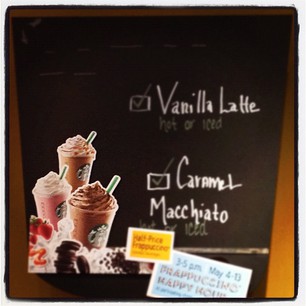 Vanilla Latte
hot or iced
Caramel
Macchiato
hot or iced
Half-Price
Frappuccino
3-5 p.m. May 4-13
FRAPPUCCINO
HAPPY HOUR